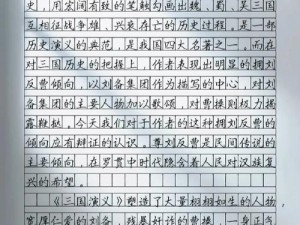 史，用宏阔有致的笔触勾画出魏、蜀、吴三国
互相征战争雄，兴衰存亡的历史过程。是一部
历史演义的典范，是我国四大名著之一。而在
对三国历史的把握上，作者表现出明显的拥刘
反曹倾向，以刘备集团作为描写的中心，对刘
备集团的主要人物加以歌颂，对曹操则极力揭
露鞭挞。今天我们对于作者的这种拥刘反曹的
倾向应有辩证的认识。尊刘反曹是民间传说的
主要倾向，在罗贯中时代隐含着人民对汉族复
兴的希望。
《三国演义》塑造了大量栩栩如生的人物
宽厚仁爱的刘备，残暴奸诈的曹操，一身正气